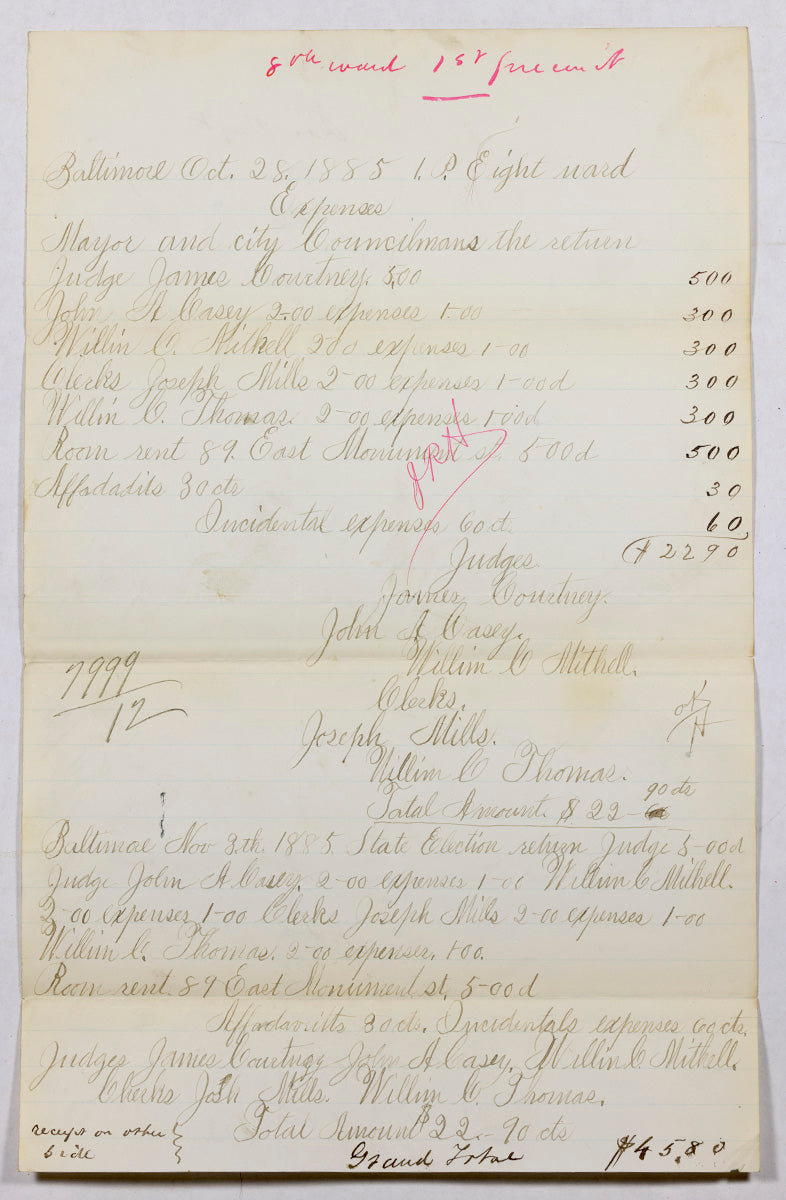 8th ward 1st precinct
Baltimore Oct. 28. 1885 1. P. Eight ward
Expenses
Mayor and city Councilmans the return
Judge James Courtney. 5,00 500
John A Casey 2-00 expenses 1-00 300
Willin C. Mithell 200 expenses 1-00 300
Clerks Joseph Mills 2-00 expenses 1-00d 300
Willin C. Thomas. 2-00 expenses 1-00d 300
Room rent 89. East Monument st. 500d 500
Affadadits 30 cts 30
Incidental expenses 60 ct. 60
JRH
Judges $2290
James Courtney.
John A Casey.
Willim C Mithell.
7999
12
Clerks.
Joseph Mills.
ok
H
Willim C Thomas.
90 cts
Total Amount. $22-
Baltimore Nov 3th. 1885. State Election return Judge 5-00d
Judge John A Casey. 2-00 expenses 1-00 Willim C Mithell.
2-00 expenses 1-00 Clerks Joseph Mills 2-00 expenses 1-00
Willim C. Thomas. 2-00 expenses. 100.
Room rent. 89 East Monument st, 5-00d
Affadavitts 30 cts. Incidentals expenses 60 cts.
Judges James Courtney John A Casey. Willin C. Mithell.
Clerks Josh Mills. Willim C. Thomas.
Total Amount $22.-90 cts
receipt on other side
Grand Total $45.80